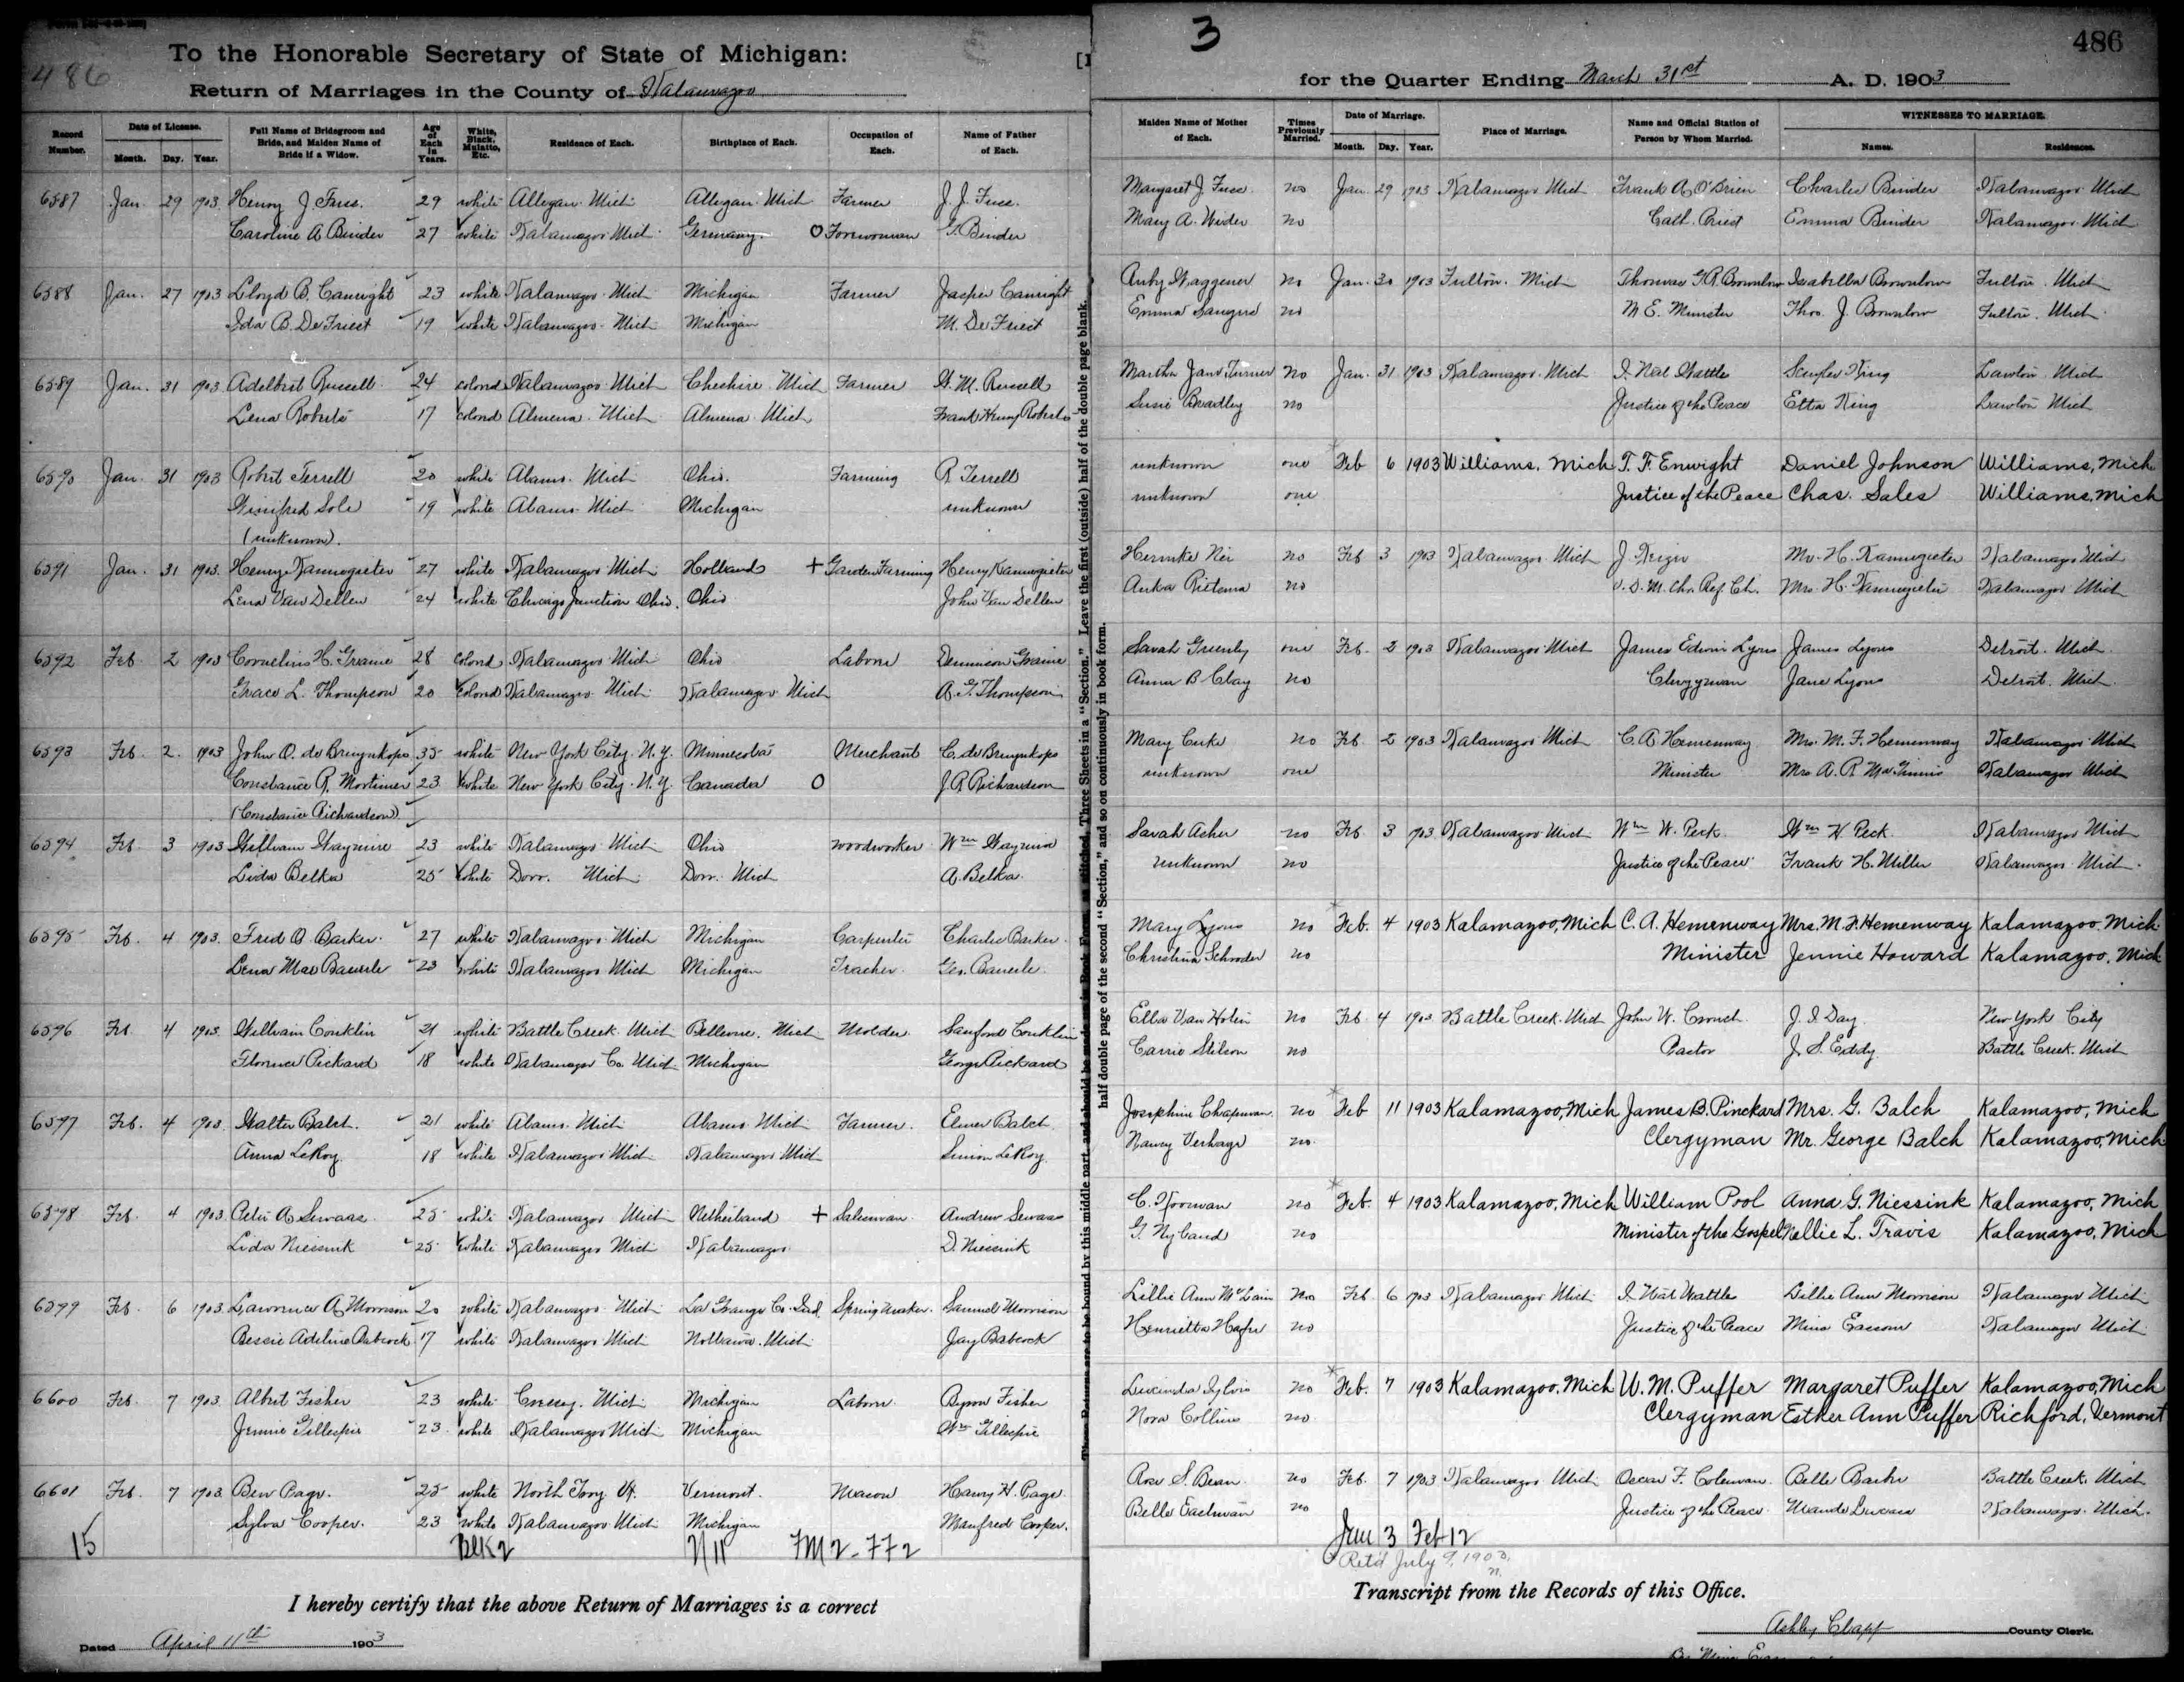 486
To the Honorable Secretary of State of Michigan:
Return of Marriages in the County of Kalamazoo
3
486
for the Quarter Ending March 31st A. D. 1903
Record Number. Date of License. Month. Day. Year. Full Name of Bridegroom and Bride, and Maiden Name of Bride if a Widow. Age of Each in Years. White, Black, Mulatto, Etc. Residence of Each. Birthplace of Each. Occupation of Each. Name of Father of Each. Maiden Name of Mother of Each. Times Previously Married. Date of Marriage. Month. Day. Year. Place of Marriage. Name and Official Station of Person by Whom Married. WITNESSES TO MARRIAGE. Names. Residences.
6587 Jan 29 1903 Henry J. Fuss. 29 white Allegan Mich Allegan Mich Farmer J. J. Fuss. Margaret J. Fuss no Jan 29 1903 Kalamazoo Mich Frank A. O'Brien Charles Binder Kalamazoo Mich
Caroline A Binder 27 white Kalamazoo Mich Germany. O Forewoman G. Binder Mary A. no Cath. Priest Emma Binder Kalamazoo Mich
6588 Jan. 27 1903 Lloyd B. Canright 23 white Kalamazoo Mich Michigan Farmer Jasper Canright Waggener no Jan. 30 1903 Fulton. Mich Thomas G.R. Brownlow Isabella Brownlow Fulton. Mich
Ida B. De Friest 19 white Kalamazoo Mich Michigan M. De Friest Emma no M E. Minister Thos. J. Brownlow Fulton. Mich
6589 Jan. 31 1903 Adelbert Russell 24 colored Kalamazoo Mich Cheshire Mich Farmer Russell Martha Jane Turner no Jan. 31 1903 Kalamazoo Mich Wattles King Lawton Mich
Lena Roberts 17 colored Almena. Mich Almena Mich Frank Henry Roberts Susie Bradley no Justice of the Peace Etta King Lawton Mich
6590 Jan. 31 1903 Robert Terrell 20 white Alamo. Mich Ohio. Farming R Terrell unknown one Feb 6 1903 Williams, Mich T. F. Enwight Daniel Johnson Williams, Mich
Winifred Sole 19 white Alamo Mich Michigan unknown unknown one Justice of the Peace Chas. Sales Williams, Mich
(unknown).
6591 Jan. 31 1903. Henry Kannegieter 27 white Kalamazoo Mich Holland + Garden Farming Henry Kannegieter no Feb 3 1903 Kalamazoo Mich J Mr. H. Kannegieter Kalamazoo Mich
Lena Van Dellen 24 white Chicago Junction Ohio. Ohio John Van Dellen Anka Rietema no V. D. M. Chr. Ref. Ch. Mrs. H. Kannegieter Kalamazoo Mich
6592 Feb 2 1903 Cornelius H. 28 colored Kalamazoo Mich Ohio Laborer Sarah one Feb. 2 1903 Kalamazoo Mich James Edwin Lyons James Lyons Detroit. Mich
Grace L. Thompson 20 colored Kalamazoo Mich Kalamazoo Mich A. G. Thompson Anna B Clay no Clergyman Jane Lyons Detroit. Mich.
6593 Feb. 2. 1903 John O. de Bruynkops 35 white New York City. N. Y. Minnesota Merchant C. de Bruynkops Mary no Feb 2 1903 Kalamazoo Mich C. A Hemenway Mrs. M. F. Hemenway Kalamazoo Mich
Constance R. Mortimer 23 white New York City. N. Y. Canada O J. R Richardson unknown one Minister Mrs A. R McGinnis Kalamazoo Mich
(Constance Richardson)
6594 Feb. 3 1903 William Waymire 23 white Kalamazoo Mich Ohio woodworker Wm Waymire Sarah Asher no Feb 3 1903 Kalamazoo Mich Wm W. Peck Wm W Peck Kalamazoo Mich
Lida Belka 25 white Dorr. Mich Dorr. Mich A. Belka. unknown no Justice of the Peace Frank H. Miller Kalamazoo Mich.
6595 Feb. 4 1903. Fred O Barker. 27 white Kalamazoo Mich Michigan Carpenter Charlie Barker. Mary Lyons no Feb. 4 1903 Kalamazoo, Mich C. A. Hemenway Mrs. M. F. Hemenway Kalamazoo, Mich
Lena Mae Bauerle 23 white Kalamazoo Mich Michigan Teacher. Geo. Bauerle. Christina Schroder no Minister Jennie Howard Kalamazoo, Mich
6596 Feb. 4 1903. William Conklin 21 white Battle Creek Mich Bellevue. Mich Molder Sanford Conklin Ella no Feb 4 1903 Battle Creek. Mich John W. Crouch. J. I. Day New York City
Florence Pickard 18 white Kalamazoo Co. Mich Michigan George Pickard Carrie Stilson no Pastor J. S. Eddy Battle Creek. Mich
6597 Feb. 4 1903. Walter Balch. 21 white Alamo. Mich Alamo Mich Farmer. Elmer Balch Josephine Chapman no Feb 11 1903 Kalamazoo, Mich James B. Pinckard Mrs. G. Balch Kalamazoo, Mich
Anna LeRoy 18 white Kalamazoo Mich Kalamazoo Mich Simon LeRoy. Nancy Verhage no. Clergyman Mr. George Balch Kalamazoo, Mich
6598 Feb. 4 1903 Peter A Sewaas. 25 white Kalamazoo Mich Netherland + Salesman Andrew Sewaas C. Noorman no Feb. 4 1903 Kalamazoo, Mich William Pool Anna G. Niessink Kalamazoo, Mich
Lida Niessink 25 white Kalamazoo Mich Kalamazoo D. Niessink G. Nyland no Minister of the Gospel Nellie L. Travis Kalamazoo, Mich
6599 Feb. 6 1903. Lawrence A. Morrison 20 white Kalamazoo Mich La Grange Co. Ind. Spring maker. Samuel Morrison Lillie Ann McLain no Feb 6 1903 Kalamazoo Mich Wattles Lillie Ann Morrison Kalamazoo Mich
Bessie Adeline Babcock 17 white Kalamazoo Mich Nottawa. Mich Jay Babcock Henrietta no Justice of the Peace Mina Kalamazoo Mich
6600 Feb. 7 1903. Albert Fisher 23 white Cressey. Mich Michigan Laborer Byron Fisher Lucinda Sylvis no Feb. 7 1903 Kalamazoo, Mich W. M. Puffer Margaret Puffer Kalamazoo, Mich
Jennie Gillespie 23 white Kalamazoo Mich Michigan Wm Gillespie Nora Collins no. Clergyman Esther Ann Puffer Richford, Vermont
6601 Feb. 7 1903. Ben Page. 25 white North Troy Vt. Vermont. Mason Harry H. Page Rose S. Bean no Feb. 7 1903 Kalamazoo Mich Oscar F. Coleman Belle Battle Creek. Mich
Sylva Cooper. 23 white Kalamazoo Mich Michigan Manfred Cooper. Belle Eastman no Justice of the Peace Maude Kalamazoo. Mich.
15 Blk 2 N 11 FM 2 - F F 2 Jan 3 Feb 12
Ret'd July 9, 1903.
The Returns are to be bound by this middle part, and should be made in Book Form, as stitched. Three Sheets in a "Section." Leave the first (outside) half of the double page blank.
half double page of the second "Section," and so on continuously in book form.
I hereby certify that the above Return of Marriages is a correct Transcript from the Records of this Office.
Dated April 11th 1903
Ashley Clapp County Clerk.